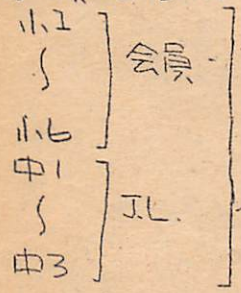 小1
〜
小6
会員
中1
〜
中3
J.L.